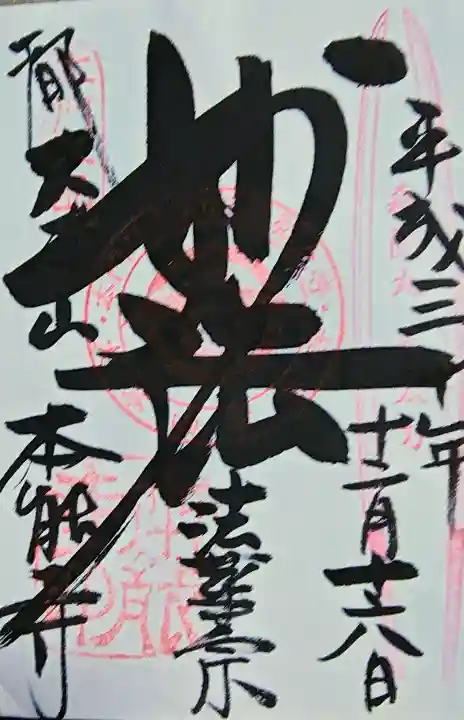 平成三十年十二月十六日
妙法
法華宗
都 大本山 本能寺